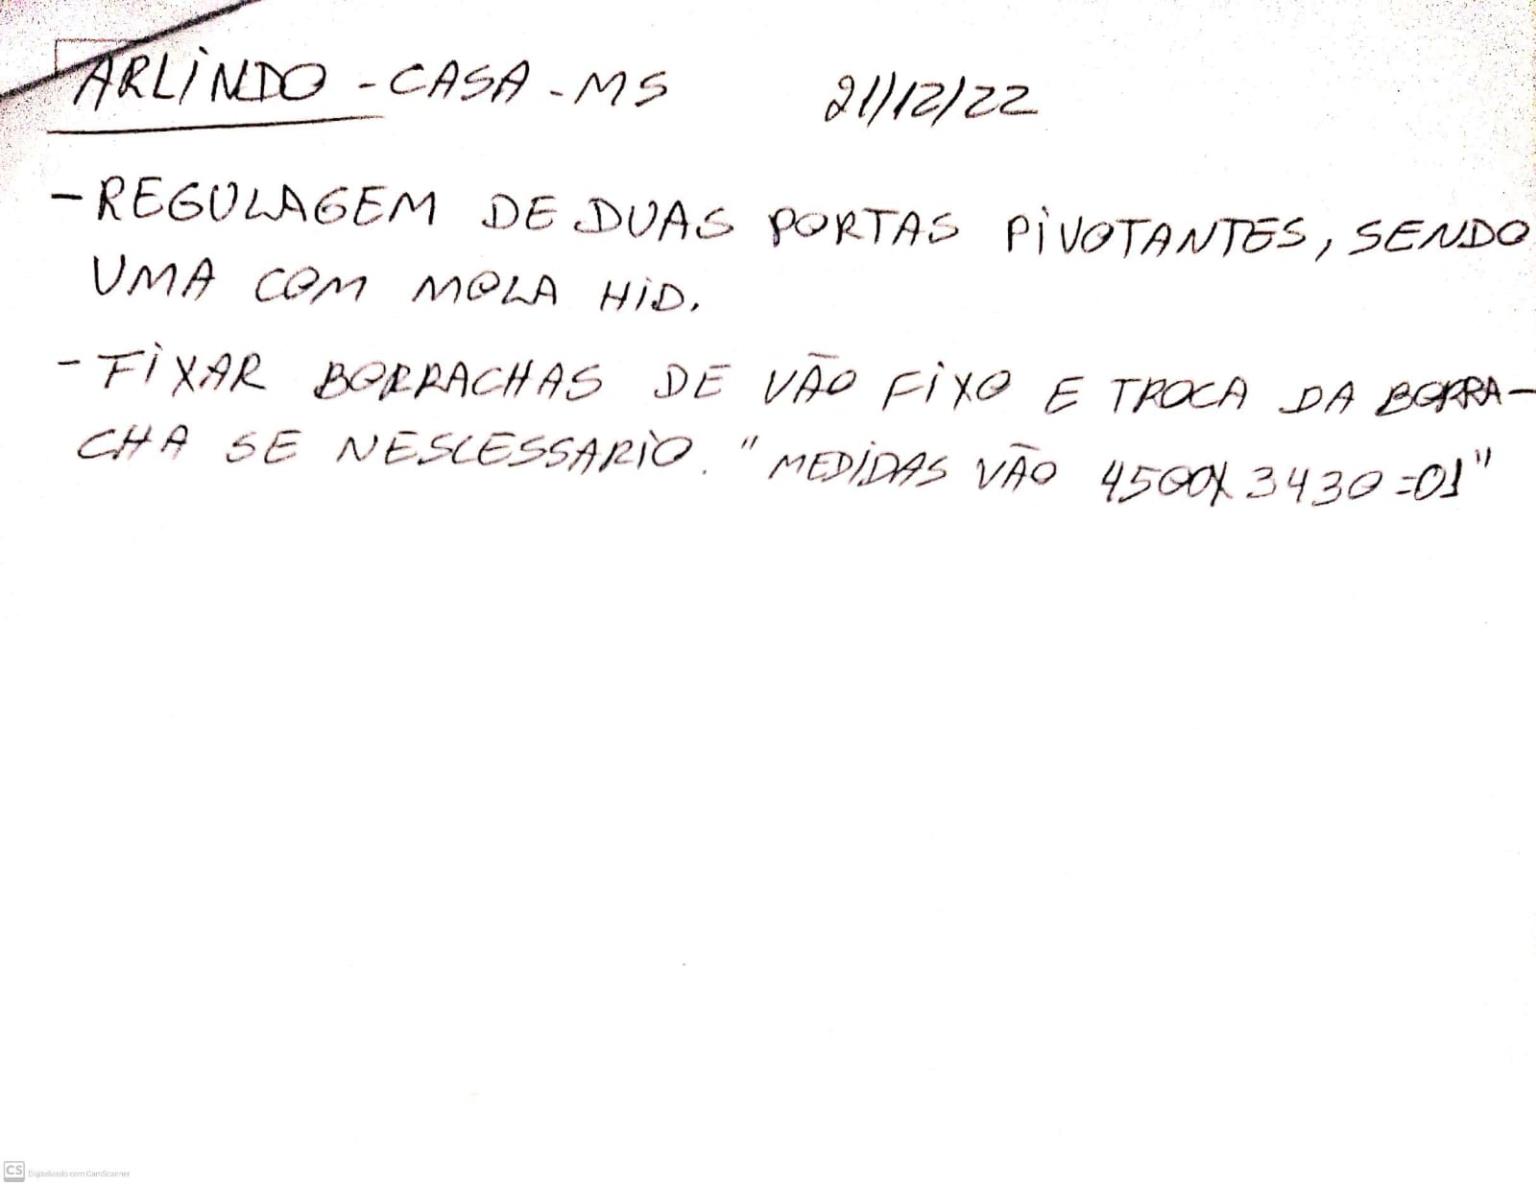 ARLINDO - CASA - MS 21/12/22
- REGULAGEM DE DUAS PORTAS PIVOTANTES, SENDO
UMA COM MOLA HID.
- FIXAR BORRACHAS DE VÃO FIXO E TROCA DA BORRA-
CHA SE NESCESSARIO. "MEDIDAS VÃO 4500X3430=01"
CS Digitalizado com CamScanner